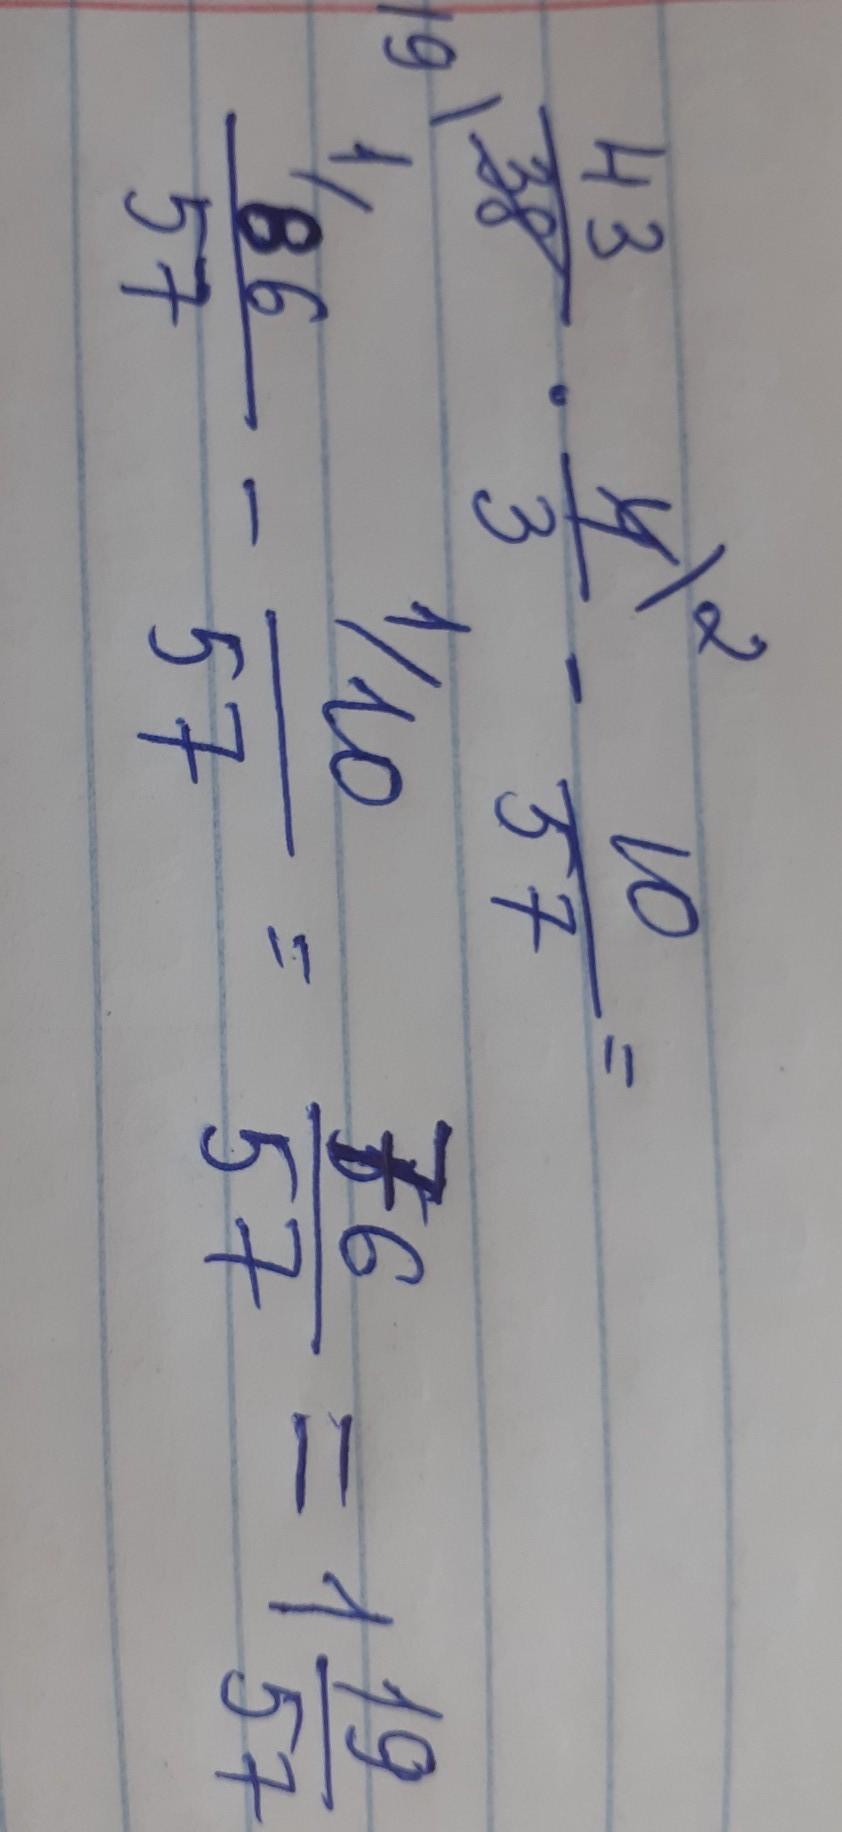 43/38 · 4/3 - 10/57 =
19 2
1/86/57 - 1/10/57 = 76/57 = 1 19/57